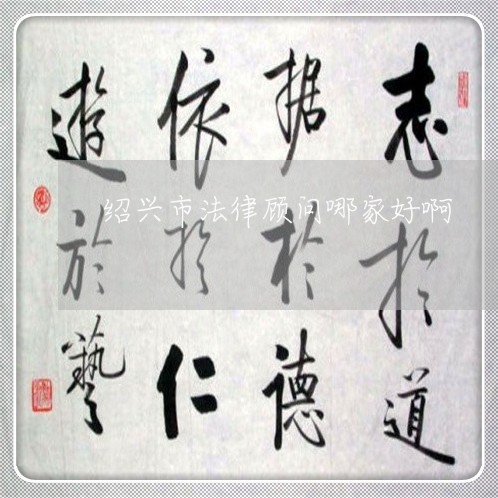 志於道
据於德
依於仁
遊於藝
绍兴市法律顾问哪家好啊